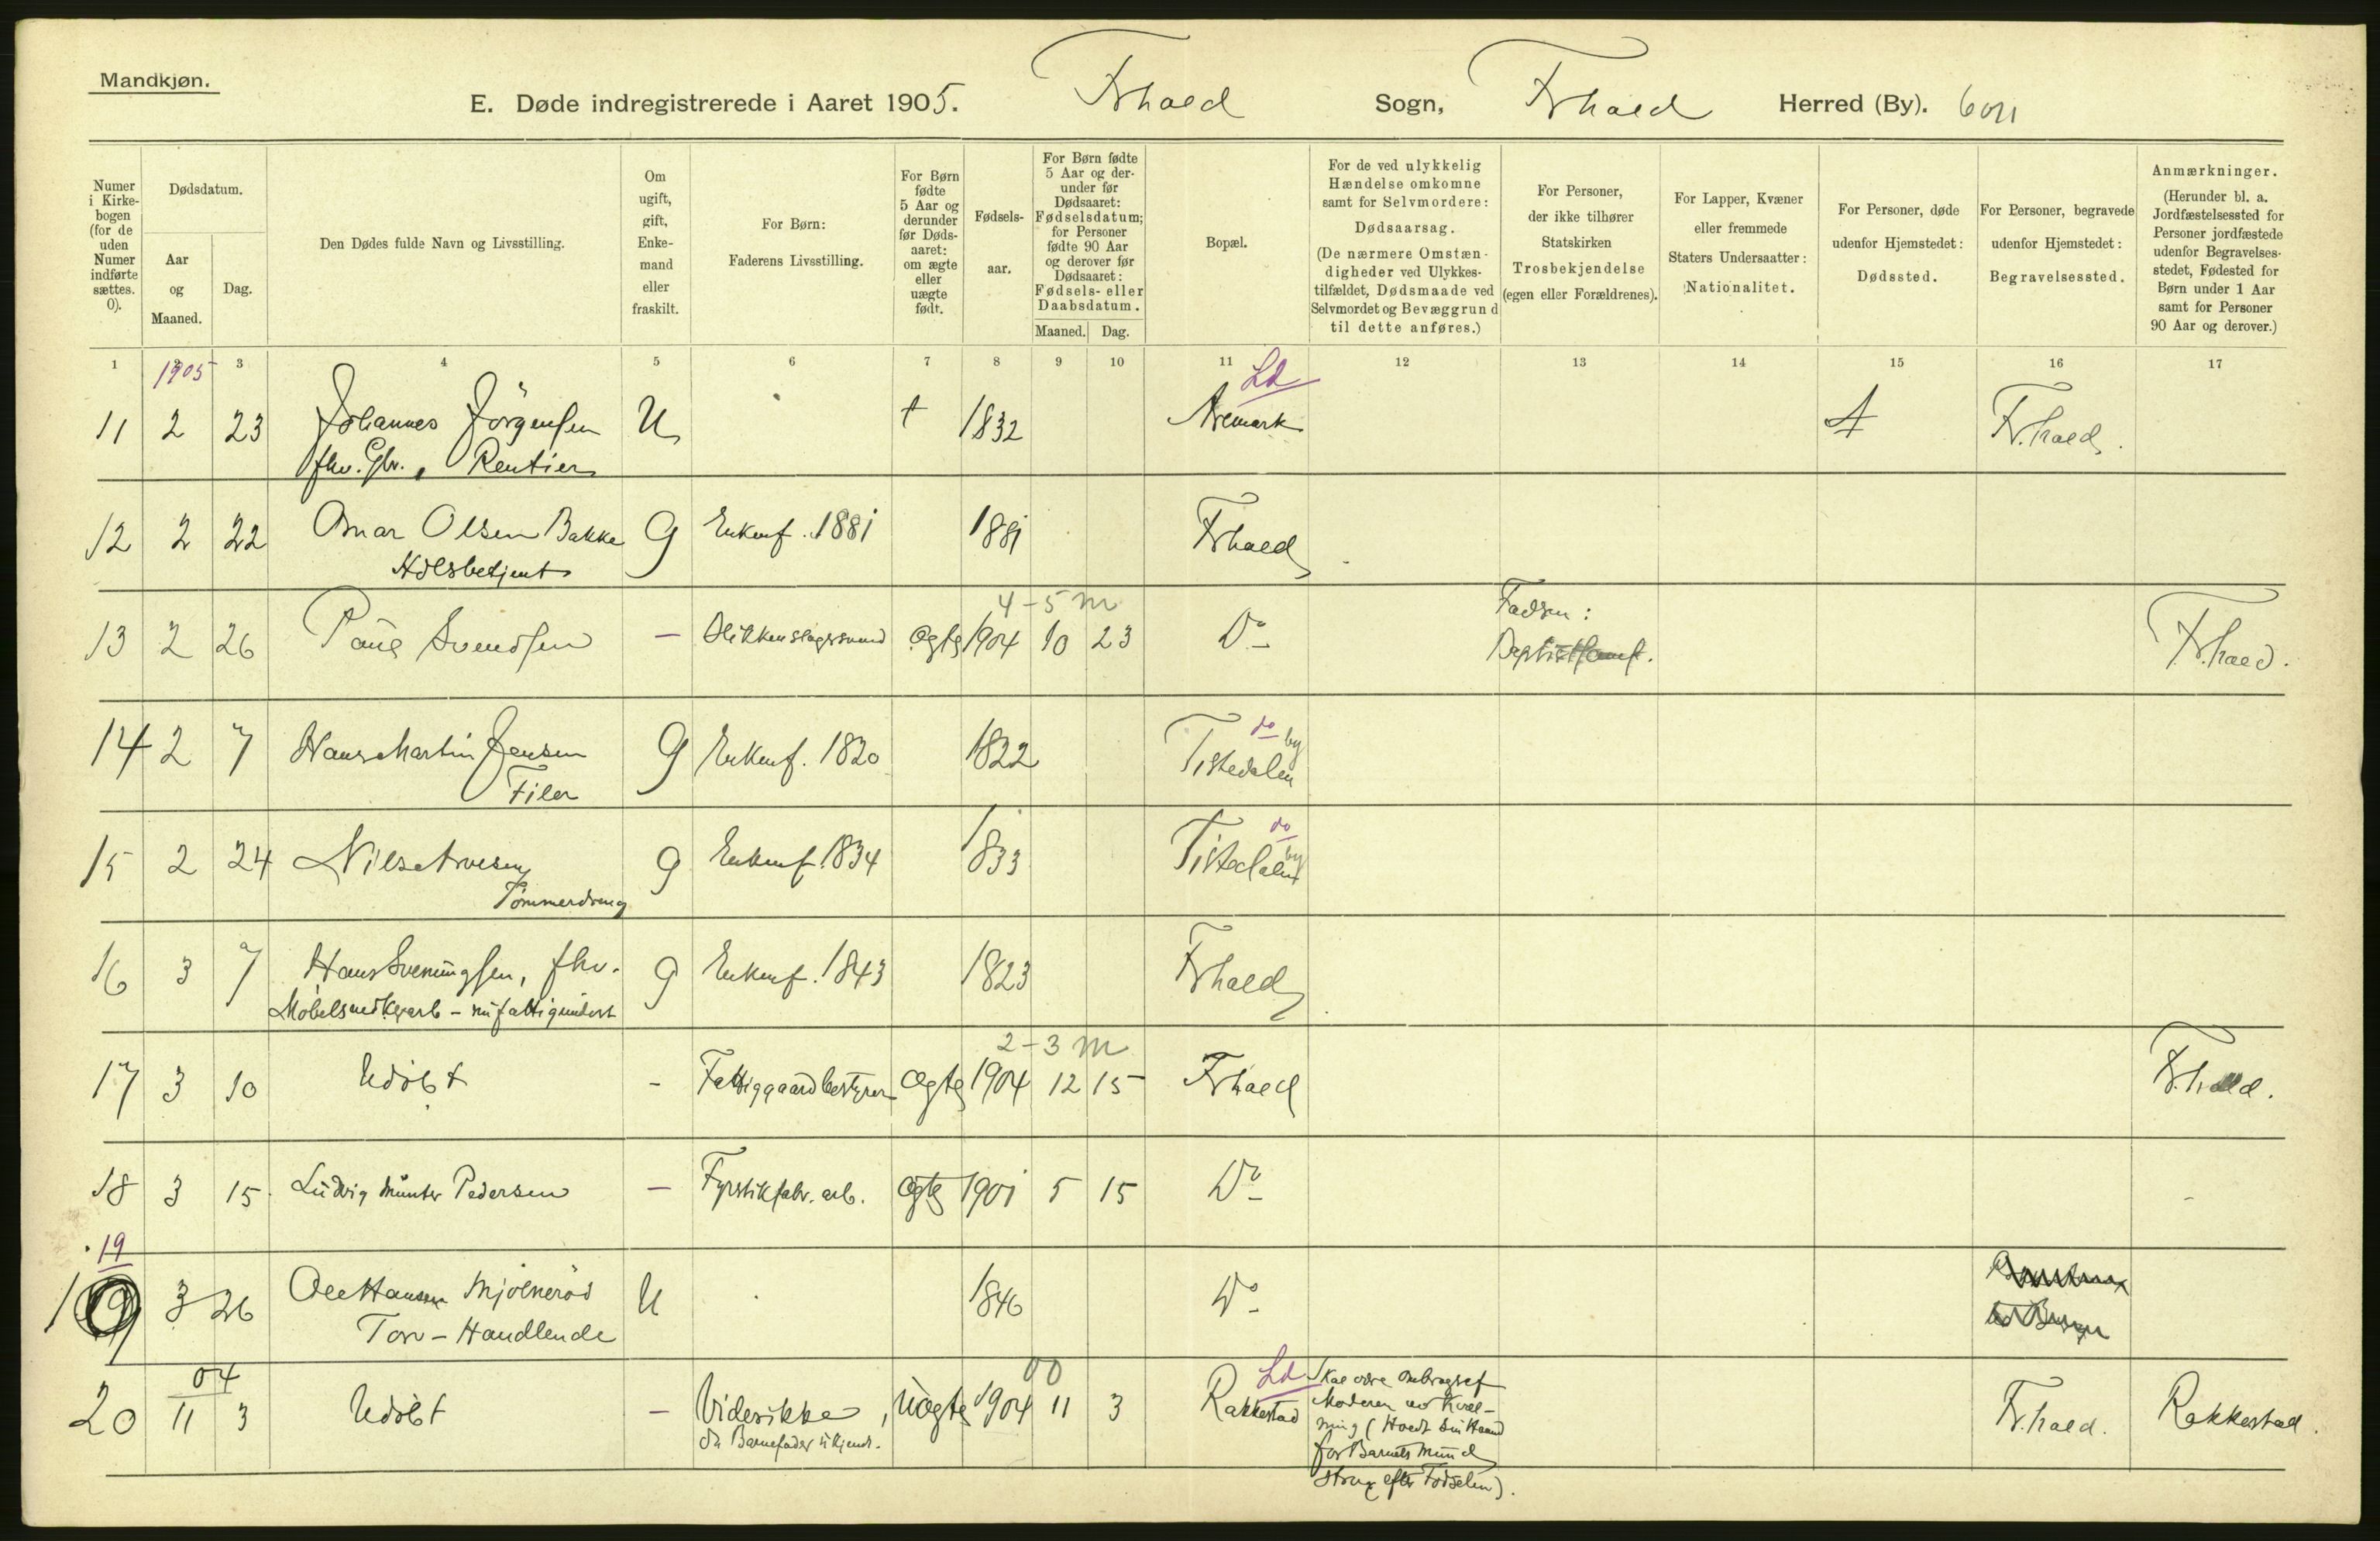 Mandkjøn.
E. Døde indregistrerede i Aaret 1905. Frhald Sogn, Frhald Herred (By).
Numer i Kirkebogen (for de uden Numer indførte sættes. 0).
Dødsdatum.
Aar og Maaned.
Dag.
Den Dødes fulde Navn og Livsstilling.
Om ugift, gift, Enkemand eller fraskilt.
For Børn: Faderens Livsstilling.
For Børn fødte 5 Aar og derunder før Dødsaaret: om ægte eller uægte født.
Fødselsaar.
For Børn fødte 5 Aar og derunder før Dødsaaret: Fødselsdatum; for Personer fødte 90 Aar og derover før Dødsaaret: Fødsels- eller Daabsdatum.
Maaned. Dag.
Bopæl.
For de ved ulykkelig Hændelse omkomne samt for Selvmordere: Dødsaarsag. (De nærmere Omstændigheder ved Ulykkestilfældet, Dødsmaade ved Selvmordet og Bevæggrund til dette anføres.)
For Personer, der ikke tilhører Statskirken Trosbekjendelse (egen eller Forældrenes).
For Lapper, Kvæner eller fremmede Staters Undersaatter: Nationalitet.
For Personer, døde udenfor Hjemstedet: Dødssted.
For Personer, begravede udenfor Hjemstedet: Begravelsessted.
Anmærkninger. (Herunder bl. a. Jordfæstelsessted for Personer jordfæstede udenfor Begravelsesstedet, Fødested for Børn under 1 Aar samt for Personer 90 Aar og derover.)
1 3 4 5 6 7 8 9 10 11 12 13 14 15 16 17
1905 Ld
11 2 23 Johannes Jörgensen U + 1832 Aremark Fr.hald.
fhv. Gbr., Rentier
12 2 22 Omar Olsen Bakke G Enkenf. 1881 1881 Frhald
Hdlsbetjent
4-5 m
13 2 26 Paul Svendsen - Blikkenslagersvend Ægte 1904 10 23 Do Fadren: Fr.hald.
Baptistsamf.
14 2 7 Hans Martin Jensen G Enkenf. 1820 1822 Tistedalen do by
Filer
15 2 24 Nils Arvesen G Enkenf. 1834 1833 Tistedalen do by
Tömmerdreng
16 3 7 Hans Sveningsen, fhv. G Enkenf. 1843 1823 Frhald
Möbelsnedkerarb - nu fattigunderst
2-3 m
17 3 10 Udöbt - Fattiggaardbestyrer Ægte 1904 12 15 Frhald Fr.hald.
18 3 15 Ludvig Münter Pedersen - Fyrstikfabr. arb. Ægte 1901 5 15 Do
19
19 3 26 Ole Hansen Mjölneröd U 1846 Do
Torv-Handlende
04 00 Ld
20 11 3 Udöbt - Vides ikke, Uægte 1904 11 3 Rakkestad Fr.hald. Rakkestad.
da Barnefader ukjendt.
Skal være ombragt af
Moderen ved Kvæl-
ning (Holdt sin Haand
for Barnets Mund
strax efter Fødselen).